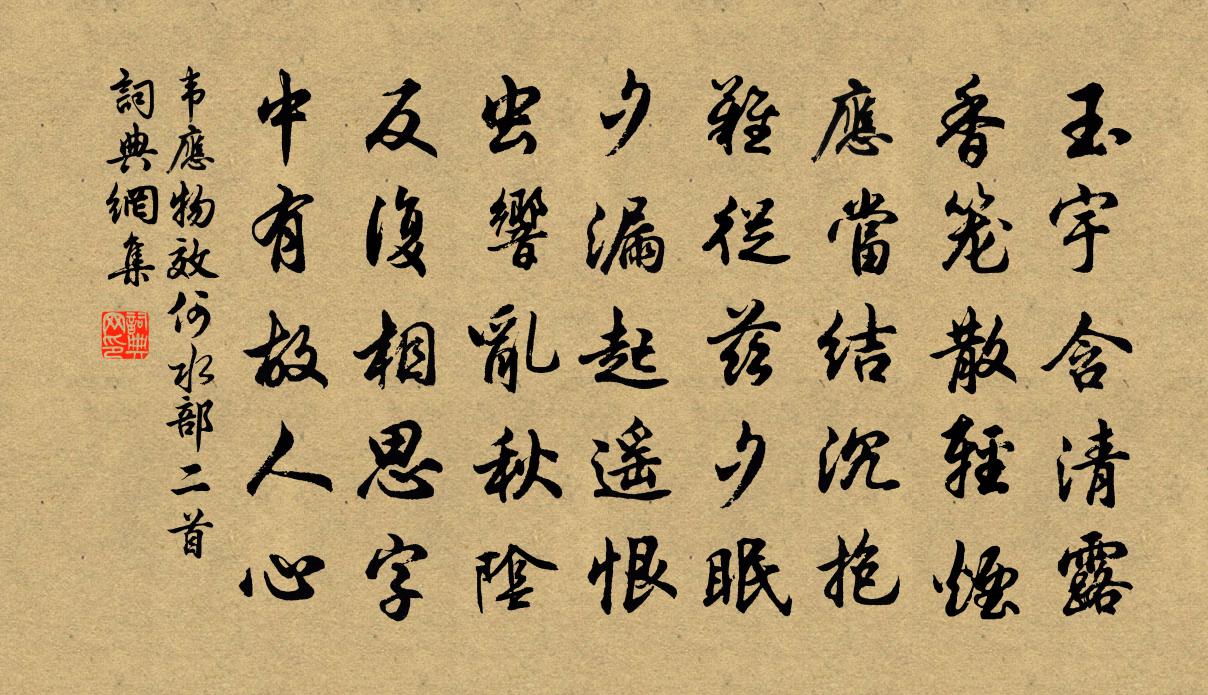 玉宇含清露
香笼散輕煙
應當結沉抱
難從茲夕眠
夕漏起遥恨
虫響亂秋陰
反復相思字
中有故人心
韦應物效何水部二首
詞典網集
詞典网印